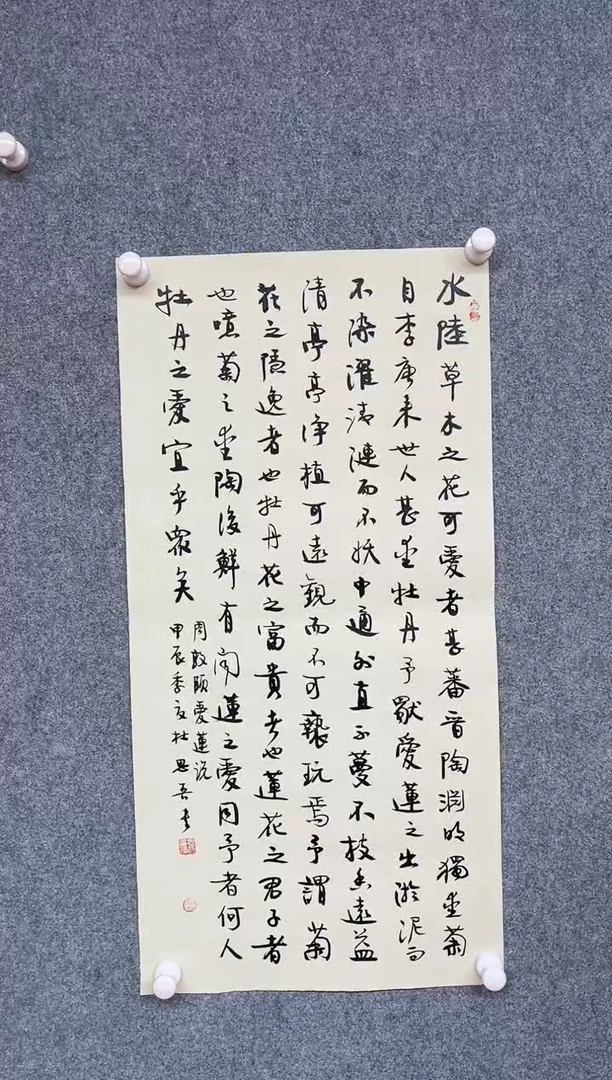 水陸草木之花可愛者甚蕃晉陶淵明獨愛菊
自李唐来世人甚愛牡丹予獨愛蓮之出淤泥而
不染濯清漣而不妖中通外直不蔓不枝香遠益
清亭亭净植可遠觀而不可褻玩焉予謂菊
花之隱逸者也牡丹花之富貴者也蓮花之君子者
也噫菊之愛陶後鮮有聞蓮之愛同予者何人
牡丹之愛宜乎衆矣
周敦頤愛蓮説
甲辰季夏杜思吾书